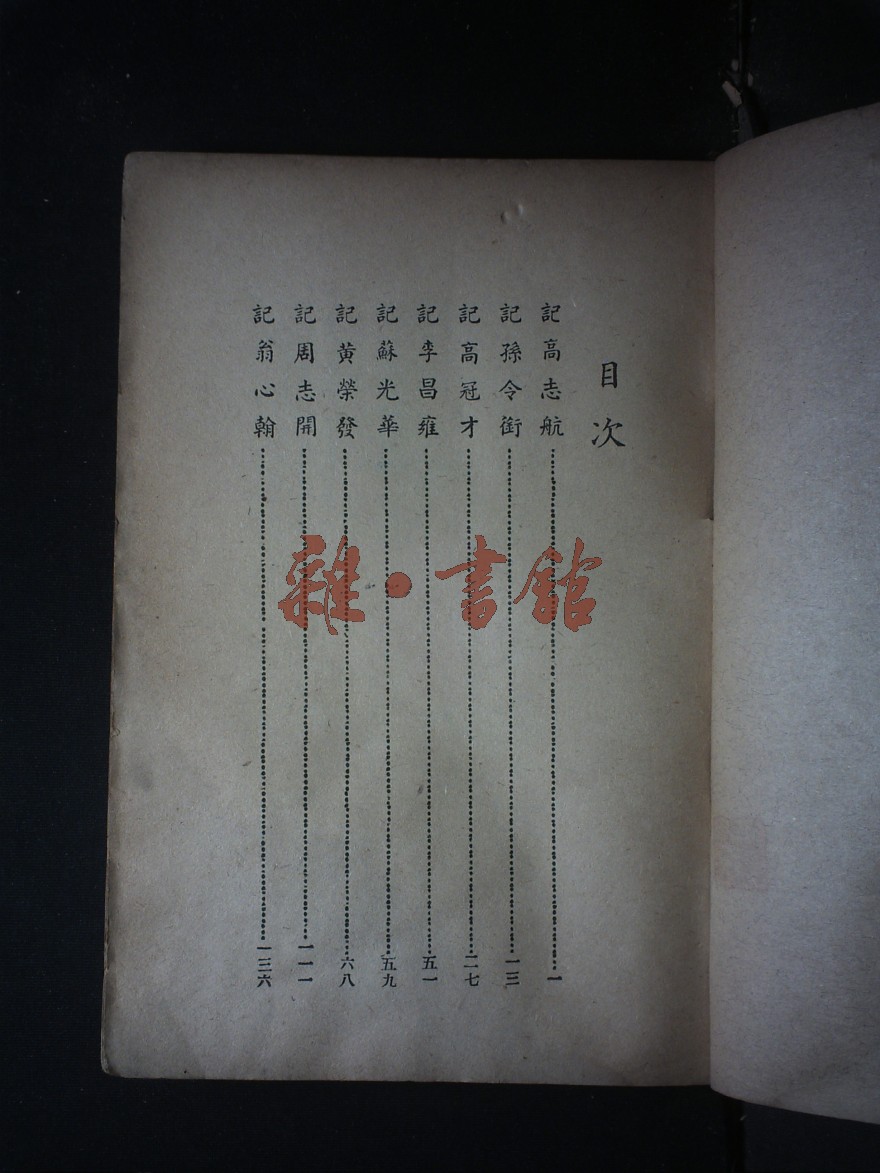 目次
記高志航一
記孫令銜一三
記高冠才二七
記李昌雍五一
記蘇光華五九
記黃榮發六八
記周志開一一一
記翁心翰一三六
雜·書館